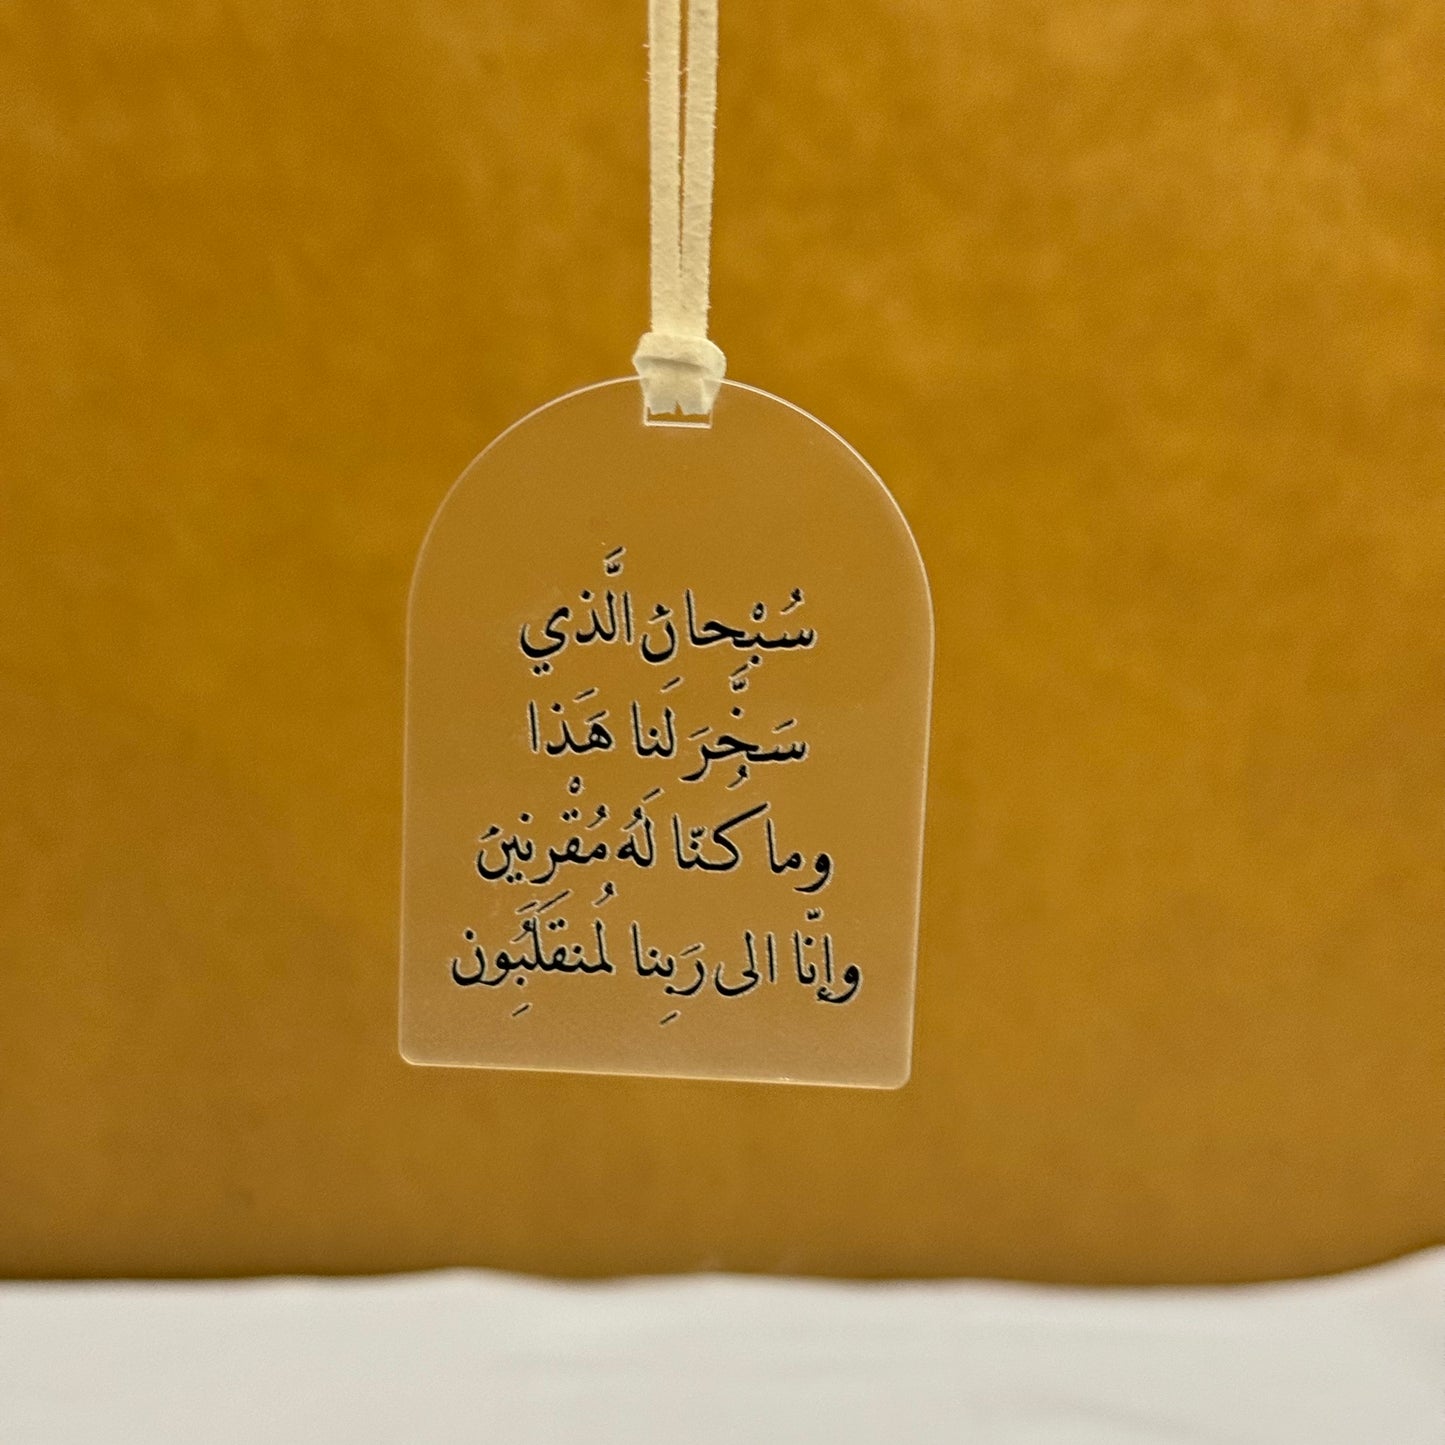 سُبْحانَ الَّذي
سَخَّرَ لَنا هَذا
وما كُنّا لَهُ مُقْرِنينَ
وإنّا الى رَبِنا لَمُنقَلَِبُون